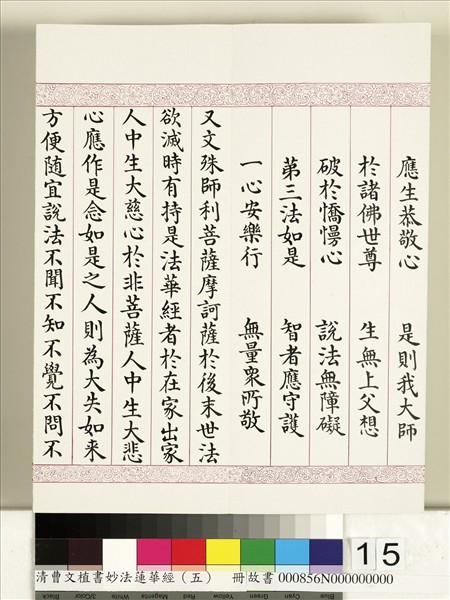 應生恭敬心　是則我大師
於諸佛世尊　生無上父想
破於憍慢心　說法無障礙
第三法如是　智者應守護
一心安樂行　無量眾所敬
又文殊師利菩薩摩訶薩於後末世法
欲滅時有持是法華經者於在家出家
人中生大慈心於非菩薩人中生大悲
心應作是念如是之人則為大失如来
方便随宜說法不聞不知不覺不問不
15
清曹文植書妙法蓮華經（五）　冊故書 000856N000000000
Black 3/Color White Magenta Red Yellow Green Cyan Blue